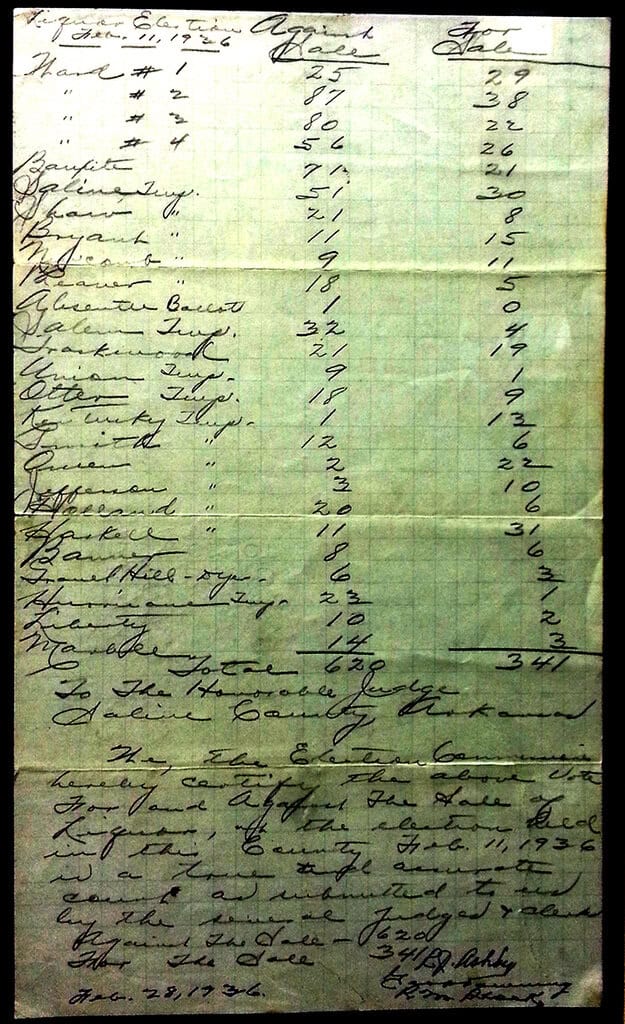 Liquor Election Against For
Feb. 11, 1936 Sale Sale
Ward # 1 25 29
" # 2 87 38
" # 3 80 22
" # 4 56 26
Bauxite 71 21
Saline Twp. 51 30
Shaw " 21 8
Bryant " 11 15
" 9 11
Beaver " 18 5
Absentee Ballott 1 0
Salem Twp. 32 4
Traskwood 21 19
Union Twp. 9 1
Otter Twp. 18 9
Kentucky Twp. 1 13
Smith " 12 6
Owen " 2 22
Jefferson " 3 10
Holland " 20 6
Haskell " 11 31
Banner 8 6
Gravel Hill - Dyer - 6 3
Hurricane Twp. 23 1
Liberty 10 2
Marble 14 3
Total 620 341
To The Honorable Judge
Saline County, Arkansas
We, the Election Commissie
hereby certify the above Vote
For and Against The Sale of
Liquor, at the election Held
in this County Feb. 11, 1936
is a true and accurate
count as submitted to us
by the several Judges & Clerks
Against The Sale - 620
For The Sale 341 Ashby
Feb. 28, 1936.